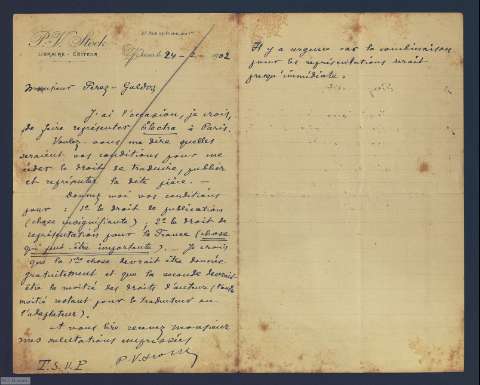 P.-V. Stock
LIBRAIRE - ÉDITEUR
24 - 2 - 1902
Monsieur Pérez-Galdos
J'ai l'occasion, je crois,
de faire représenter Electra à Paris.
Voulez-vous me dire quelles
seraient vos conditions pour me
céder le droit de traduire, publier
et représenter la dite pièce. —
Donnez moi vos conditions
pour : 1º le droit de publication
(chose insignifiante) ; 2º le droit de
représentations pour la France (chose
qui peut être importante). — Je crois
que la 1ère chose devrait être donnée
gratuitement et que la seconde devrait
être la moitié des droits d'auteur (l'autre
moitié restant pour le traducteur ou
l'adaptateur).
A vous lire recevez monsieur
mes salutations empressées
P. V. Stock
T.S.V.P
Il y a urgence car la combinaison
pour les représentations serait
presqu'immédiate.